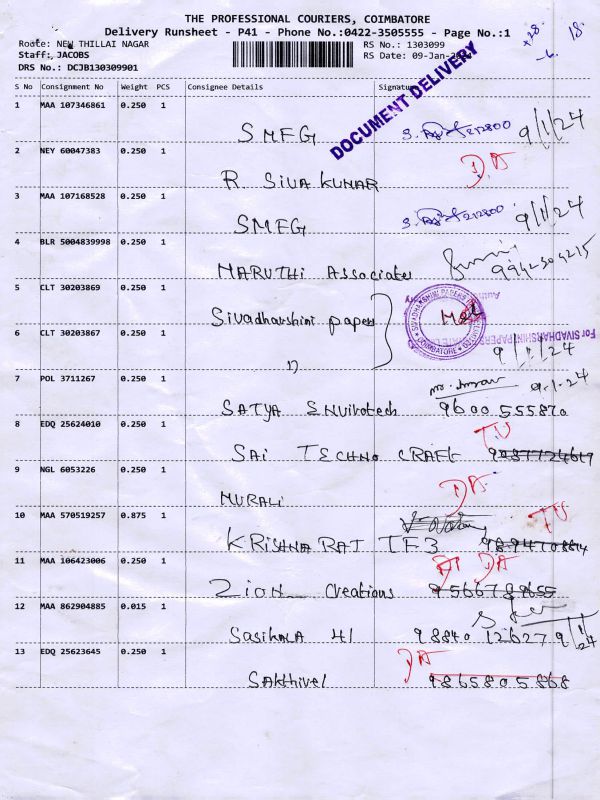 THE PROFESSIONAL COURIERS, COIMBATORE
Delivery Runsheet - P41 - Phone No.:0422-3505555 - Page No.:1
Route: NEW THILLAI NAGAR
RS No.: 1303099
Staff: JACOBS
RS Date: 09-Jan-
DRS No.: DCJB130309901
+28 18
DOCUMENT DELIVERY
S No Consignment No Weight PCS Consignee Details Signature
1 MAA 107346861 0.250 1
SMFG 212800 9/1/24
2 NEY 60047383 0.250 1 DA
R. SIVA KUMAR
3 MAA 107168528 0.250 1
SMFG 212800 9/1/24
4 BLR 5004839998 0.250 1
MARUTHI Associates 9942304215
5 CLT 30203869 0.250 1
Sivadharshini papers
SIVADHARSHINI PAPERS
COIMBATORE
6 CLT 30203867 0.250 1 For SIVADHARSHINI PAPERS
9/1/24
7 POL 3711267 0.250 1 9-1-24
SATYA Envirotech 9600 555870
8 EDQ 25624010 0.250 1
SAI TECHNO CRAFT
9 NGL 6053226 0.250 1 DA
MURALI
10 MAA 570519257 0.875 1
KRISHNA RAJ TF3
11 MAA 106423006 0.250 1 DA
Zion Creations
12 MAA 862904885 0.015 1
Sasikala 41 98840 12627 9/1/24
13 EDQ 25623645 0.250 1 DA
SAKthivel 9865805868